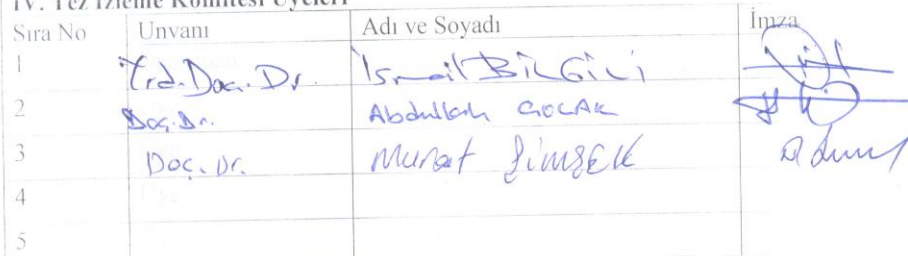 IV. Tez İzleme Komitesi Üyeleri
Sıra No Unvanı Adı ve Soyadı İmza
1 Yrd. Doç. Dr. İsmail BİLGİLİ
2 Doç. Dr. Abdullah
3 Doç. Dr. Murat ŞİMŞEK
4
5